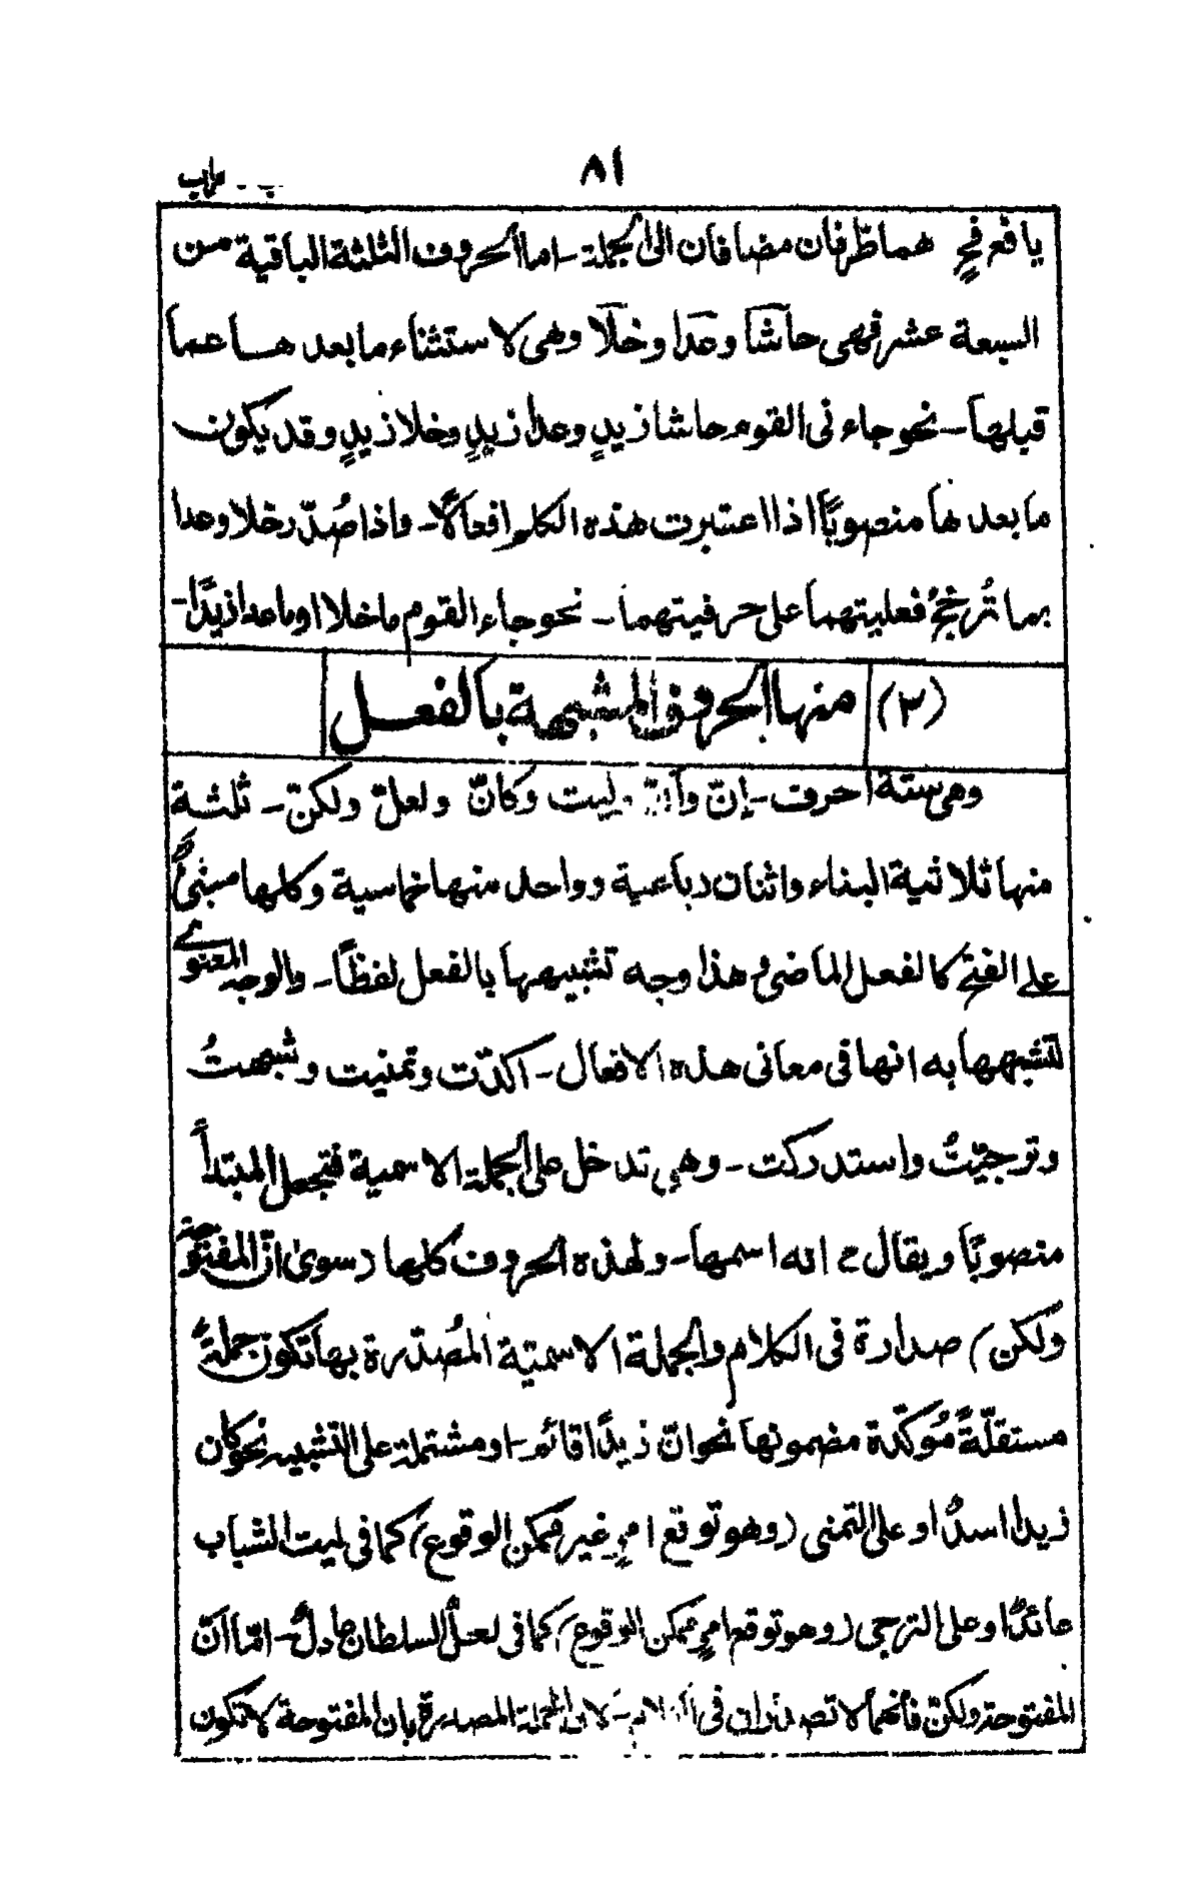 ٨١
يا فع فحٍ هما ظرفان مضافان الى الجملة - اما الحروف الثلثة الباقية من
السبعة عشر فهى حاشا وعَدا وخلَا وهى لاستثناء ما بعد هـا عما
قبلها - نحو جاء نى القوم حاشا زيدٍ وعدا زيدٍ وخلا زيدٍ وقد يكون
ما بعد ها منصوبًا اذا اعتبرت هذه الكلم افعالًا - واذا صُدّر خلا وعدا
بما تُرجّحُ فعليتهما على حرفيتهما - نحو جاء القوم ما خلا او ما عدا زيدًا -
(٢) منها الحروف المشبهة بالفعل
وهى ستة احرف - إنّ وأنّ وليت وكأنّ ولعلّ ولكنّ - ثلثة
منها ثلاثية البناء واثنان رباعية وواحد منها خماسية وكلها مبنىٌّ
على الفتح كالفعل الماضى هذا وجه تشبيهها بالفعل لفظًا - والوجه المعنوى
لتشبهها به انها فى معانى هذه الافعال - اكدّت وتمنيت وشبهتُ
وترجيّتُ واستدركت - وهى تدخل على الجملة الاسمية فتجعل المبتدأ
منصوبًا ويقال ح انه اسمها - ولهذه الحروف كلها (سوىٰ انّ المفتوحة
ولكن) صدارة فى الكلام والجملة الاسميّة المُصدّرة بها تكون جملةً
مستقلّةً مُوكّدة مضمونها نحو انّ زيدًا قائم - او مشتملة على التشبيه نحو كان
زيدا اسدٌ او على التمنى (وهو توقع امرٍ غير ممكن الوقوع) كما فى ليت الشباب
عائدٌ او على الترجى (وهو توقع امرٍ ممكن الوقوع) كما فى لعلّ السلطان عادلٌ - امّا انّ
المفتوحة ولكنّ فانهما لا تصدران فى الكلام - لان الجملة المصدرة بان المفتوحة لا تكون